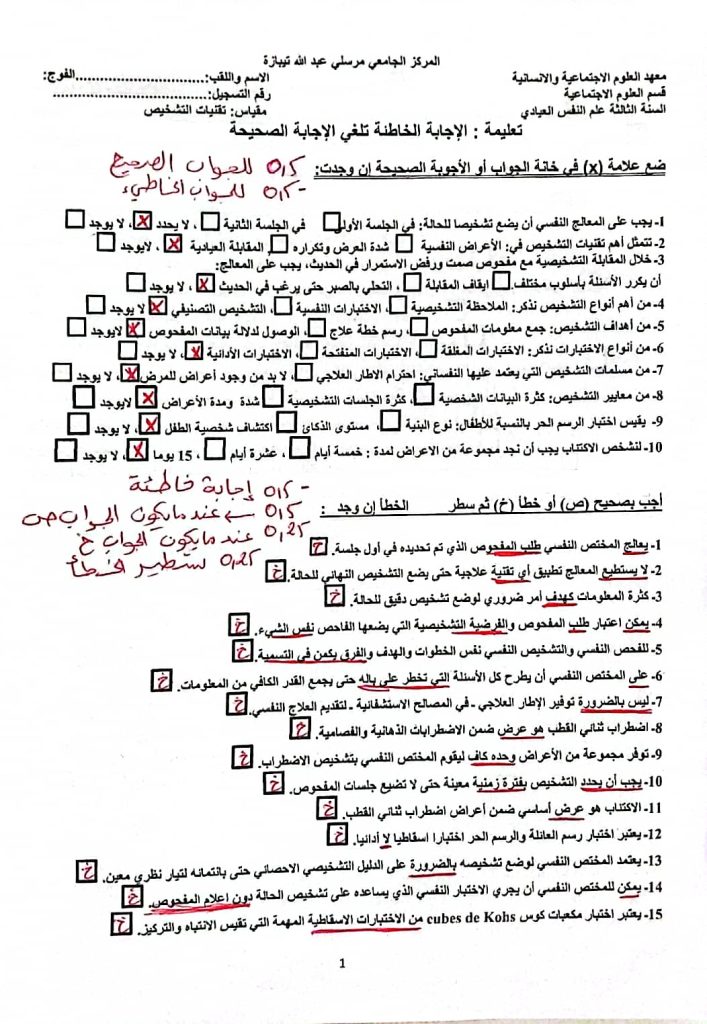 المركز الجامعي مرسلي عبد الله تيبازة
معهد العلوم الاجتماعية والانسانية الاسم واللقب:...............................الفوج:
قسم العلوم الاجتماعية رقم التسجيل:......................................
السنة الثالثة علم النفس العيادي مقياس: تقنيات التشخيص
تعليمة : الإجابة الخاطئة تلغي الإجابة الصحيحة
ضع علامة (x) في خانة الجواب أو الأجوبة الصحيحة إن وجدت: 0,5 للجواب الصحيح
-0,5 للجواب الخاطيء
1- يجب على المعالج النفسي أن يضع تشخيصا للحالة: في الجلسة الأولى☐ في الجلسة الثانية ☐، لا يحدد ☒، لا يوجد ☐
2- تتمثل أهم تقنيات التشخيص في: الأعراض النفسية ☐ شدة العرض وتكراره ☐، المقابلة العيادية ☒، لايوجد ☐
3- خلال المقابلة التشخيصية مع مفحوص صمت ورفض الاستمرار في الحديث، يجب على المعالج:
أن يكرر الأسئلة بأسلوب مختلف.☐ ايقاف المقابلة ☐، التحلي بالصبر حتى يرغب في الحديث ☒، لا يوجد ☐
4- من أهم أنواع التشخيص نذكر: الملاحظة التشخيصية ☐، الاختبارات النفسية ☐، التشخيص التصنيفي ☒، لا يوجد ☐
5- من أهداف التشخيص: جمع معلومات المفحوص ☐، رسم خطة علاج ☐، الوصول لدلالة بيانات المفحوص ☒ لايوجد ☐
6- من أنواع الاختبارات نذكر: الاختبارات المغلقة ☐، الاختبارات المنفتحة ☐، الاختبارات الأدائية ☒، لا يوجد ☐
7- من مسلمات التشخيص التي يعتمد عليها النفساني: احترام الاطار العلاجي ☐، لا بد من وجود أعراض للمرض☒، لا يوجد ☐
8- من معايير التشخيص: كثرة البيانات الشخصية ☐، كثرة الجلسات التشخيصية ☐ شدة ومدة الأعراض ☒ لايوجد ☐
9- يقيس اختبار الرسم الحر بالنسبة للأطفال: نوع البنية ☐، مستوى الذكائ ☐ اكتشاف شخصية الطفل ☒، لا يوجد ☐
10- لتشخص الاكتئاب يجب أن نجد مجموعة من الاعراض لمدة : خمسة أيام ☐، عشرة أيام ☐، 15 يوما ☒، لا يوجد ☐
-0,5 إجابة خاطئة
أجب بصحيح (ص) أو خطأ (خ) ثم سطر الخطأ إن وجد : 0,5 ← عند مايكون الجواب ص
0,25 عند مايكون الجواب خ
0,25 لتسطير الخطأ
1- يعالج المختص النفسي طلب المفحوص الذي تم تحديده في أول جلسة. خ
2- لا يستطيع المعالج تطبيق أي تقنية علاجية حتى يضع التشخيص النهائي للحالة. خ
3- كثرة المعلومات كهدف أمر ضروري لوضع تشخيص دقيق للحالة. خ
4- يمكن اعتبار طلب المفحوص والفرضية التشخيصية التي يضعها الفاحص نفس الشيء. خ
5- للفحص النفسي والتشخيص النفسي نفس الخطوات والهدف والفرق يكمن في التسمية. خ
6- على المختص النفسي أن يطرح كل الأسئلة التي تخطر على باله حتى يجمع القدر الكافي من المعلومات. خ
7- ليس بالضرورة توفير الإطار العلاجي - في المصالح الاستشفائية - لتقديم العلاج النفسي. خ
8- اضطراب ثنائي القطب هو عرض ضمن الاضطرابات الذهانية والفصامية. خ
9- توفر مجموعة من الأعراض وحده كاف ليقوم المختص النفسي بتشخيص الاضطراب. خ
10- يجب أن يحدد التشخيص بفترة زمنية معينة حتى لا تضيع جلسات المفحوص. خ
11- الاكتئاب هو عرض أساسي ضمن أعراض اضطراب ثنائي القطب. خ
12- يعتبر اختبار رسم العائلة والرسم الحر اختبارا اسقاطيا لا أدائيا. خ
13- يعتمد المختص النفسي لوضع تشخيصه بالضرورة على الدليل التشخيصي الاحصائي حتى بانتمائه لتيار نظري معين. خ
14- يمكن للمختص النفسي أن يجري الاختبار النفسي الذي يساعده على تشخيص الحالة دون اعلام المفحوص. خ
15- يعتبر اختبار مكعبات كوس cubes de Kohs من الاختبارات الاسقاطية المهمة التي تقيس الانتباه والتركيز. خ
1